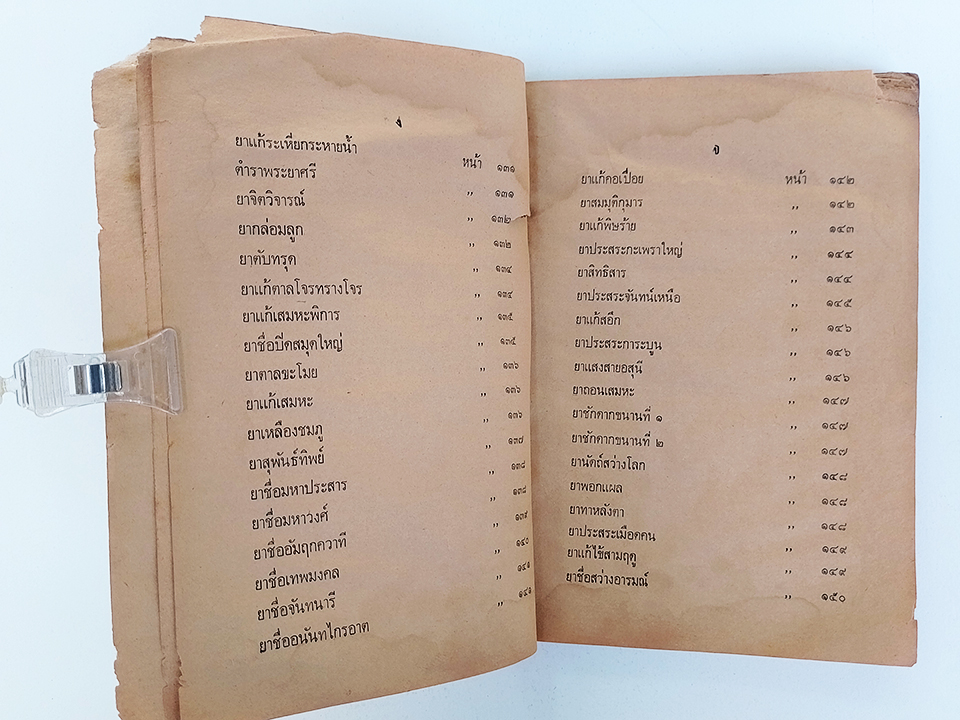 ง
ยาแก้ระเหี่ยกระหายน้ำ หน้า ๑๓๑
ตำราพระยาศรี ,, ๑๓๑
ยาจิตวิจารณ์ ,, ๑๓๒
ยากล่อมลูก ,, ๑๓๒
ยาตับทรุด ,, ๑๓๔
ยาแก้ตาลโจรทรางโจร ,, ๑๓๔
ยาแก้เสมหะพิการ ,, ๑๓๕
ยาชื่อปิดสมุดใหญ่ ,, ๑๓๕
ยาตาลขะโมย ,, ๑๓๖
ยาแก้เสมหะ ,, ๑๓๖
ยาเหลืองชมภู ,, ๑๓๖
ยาสุพันธ์ทิพย์ ,, ๑๓๗
ยาชื่อมหาประสาร ,, ๑๓๘
ยาชื่อมหาวงศ์ ,, ๑๓๘
ยาชื่ออัมฤกควาที ,, ๑๓๙
ยาชื่อเทพมงคล ,, ๑๔๐
ยาชื่อจันทนารี ,, ๑๔๑
ยาชื่ออนันทไกรอาต ,, ๑๔๑
จ
ยาแก้คอเปื่อย หน้า ๑๔๒
ยาสมมุติกุมาร ,, ๑๔๒
ยาแก้พิษร้าย ,, ๑๔๓
ยาประสระกะเพราใหญ่ ,, ๑๔๔
ยาสิทธิสาร ,, ๑๔๔
ยาประสระจันทน์เหนือ ,, ๑๔๕
ยาแก้สอึก ,, ๑๔๖
ยาประสระการะบูน ,, ๑๔๖
ยาแสงสายอสุนี ,, ๑๔๖
ยาถอนเสมหะ ,, ๑๔๗
ยาชักดากขนานที่ ๑ ,, ๑๔๗
ยาชักดากขนานที่ ๒ ,, ๑๔๗
ยานัตถ์สว่างโลก ,, ๑๔๘
ยาพอกแผล ,, ๑๔๘
ยาทาหลังตา ,, ๑๔๘
ยาประสระเมือดคน ,, ๑๔๙
ยาแก้ไข้สามฤดู ,, ๑๔๙
ยาชื่อสว่างอารมณ์ ,, ๑๕๐